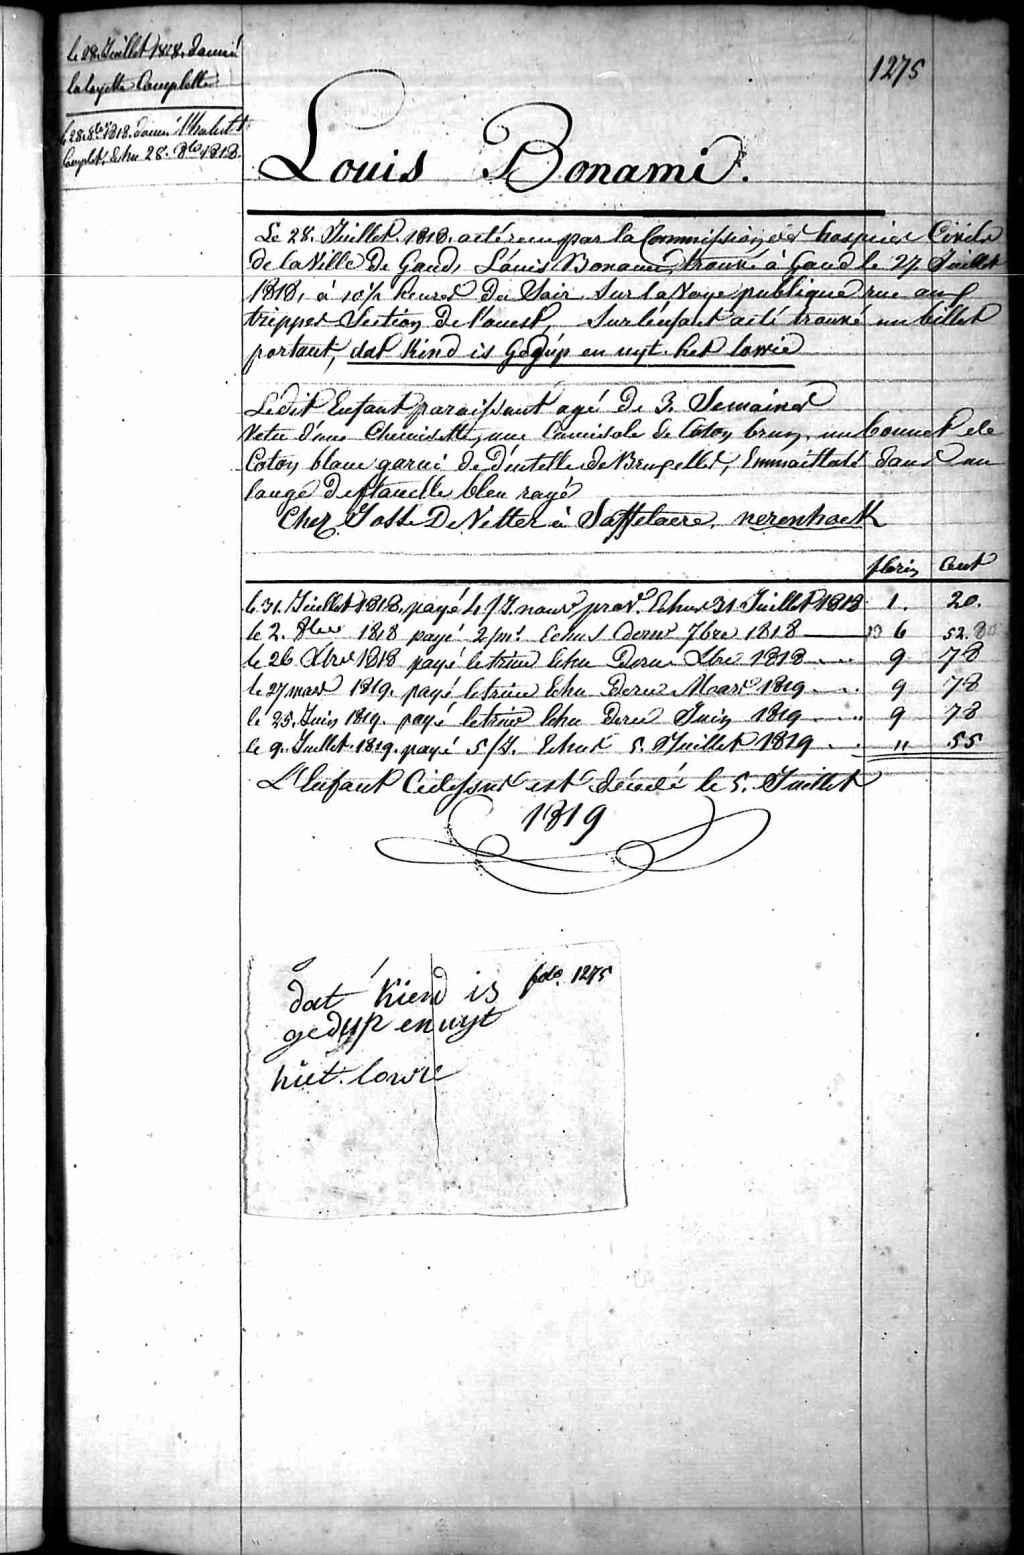 le 28. Juillet 1818. donné
la layette Complette
le 28. 8bre 1818. donné l'habillt
Complet, Echu 28. 8bre 1818.
1275
Louis Bonami.
Le 28. Juillet 1818. a été reçu par la Commission des hospices Civils
de la Ville de Gand, Louis Bonami, trouvé à Gand le 27 Juillet
1818, à 10½ heures du Soir Sur la Voye publique rue aux
trippes Section de l'ouest, Sur l'enfant a été trouvé un billet
portant, dat kind is gedup en uyt. het lowie
Ledit Enfant paraissant agé de 3. Semaines
Vetu d'une Chemisette, une Camisole de Coton brun, un bonnet de
Coton blanc garni de Dentelle de Bruxelles, Emmaillotté dans un
lange de flanelle bleu rayé
Chez Josse De Vetter à Saffelaere,
florin Cent
le 31. Juillet 1818. payé 4 /J. nourre prove. Echus 31. Juillet 1818 1. 20.
le 2. 8bre 1818 payé 2/m. Echus dernr 7bre 1818 6 52.
le 26 Xbre 1818 payé le trime Echu Dernr Xbre 1818 9 78
le 27 mars 1819. payé le trime Echu Dernr Mars 1819 9 78
le 25. Juin 1819. payé le trime Echu Dernr Juin 1819 9 78
le 9. Juillet 1819. payé 5/J. Echus 5. Juillet 1819 " 55
L'Enfant Cidessus est décédé le 5. Juillet
1819
folo. 1275
dat kiend is
gedup en uyt
hiet. lowie